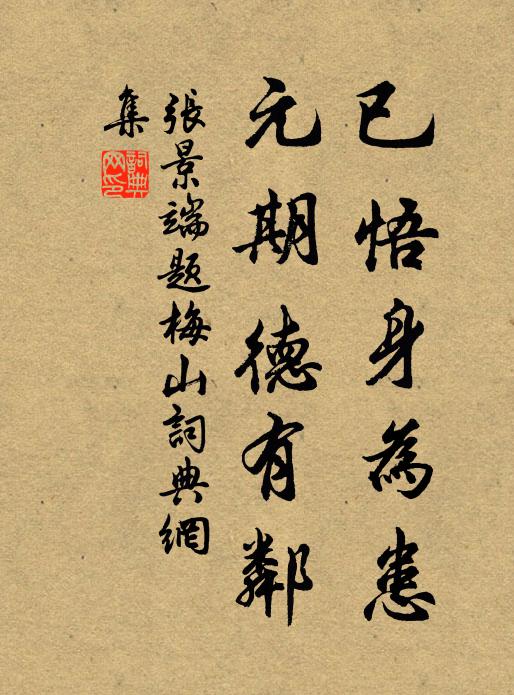 已悟身為患
元期德有鄰
張景端題梅山詞典網
集
詞典網印